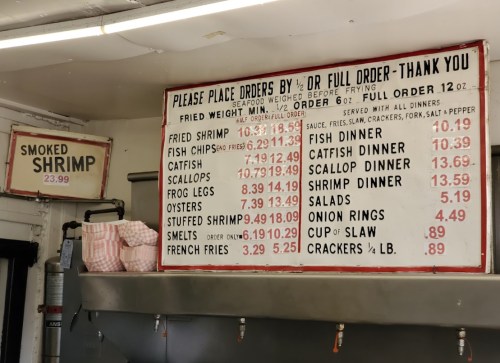 PLEASE PLACE ORDERS BY 1/2 OR FULL ORDER - THANK YOU
SEAFOOD WEIGHED BEFORE FRYING
FRIED WEIGHT MIN. 1/2 ORDER 6 OZ FULL ORDER 12 OZ
HALF ORDER/FULL ORDER
FRIED SHRIMP 10.39
FISH CHIPS (NO FRIES) 6.29 11.39
CATFISH 7.19 12.49
SCALLOPS 10.79 19.49
FROG LEGS 8.39 14.19
OYSTERS 7.39 13.49
STUFFED SHRIMP 9.49 18.09
SMELTS ORDER ONLY 6.19 10.29
FRENCH FRIES 3.29 5.25
SERVED WITH ALL DINNERS
SAUCE, FRIES, SLAW, CRACKERS, FORK, SALT & PEPPER
FISH DINNER 10.19
CATFISH DINNER 10.39
SCALLOP DINNER 13.69
SHRIMP DINNER 13.59
SALADS 5.19
ONION RINGS 4.49
CUP OF SLAW .89
CRACKERS 1/4 LB. .89
SMOKED
SHRIMP
23.99